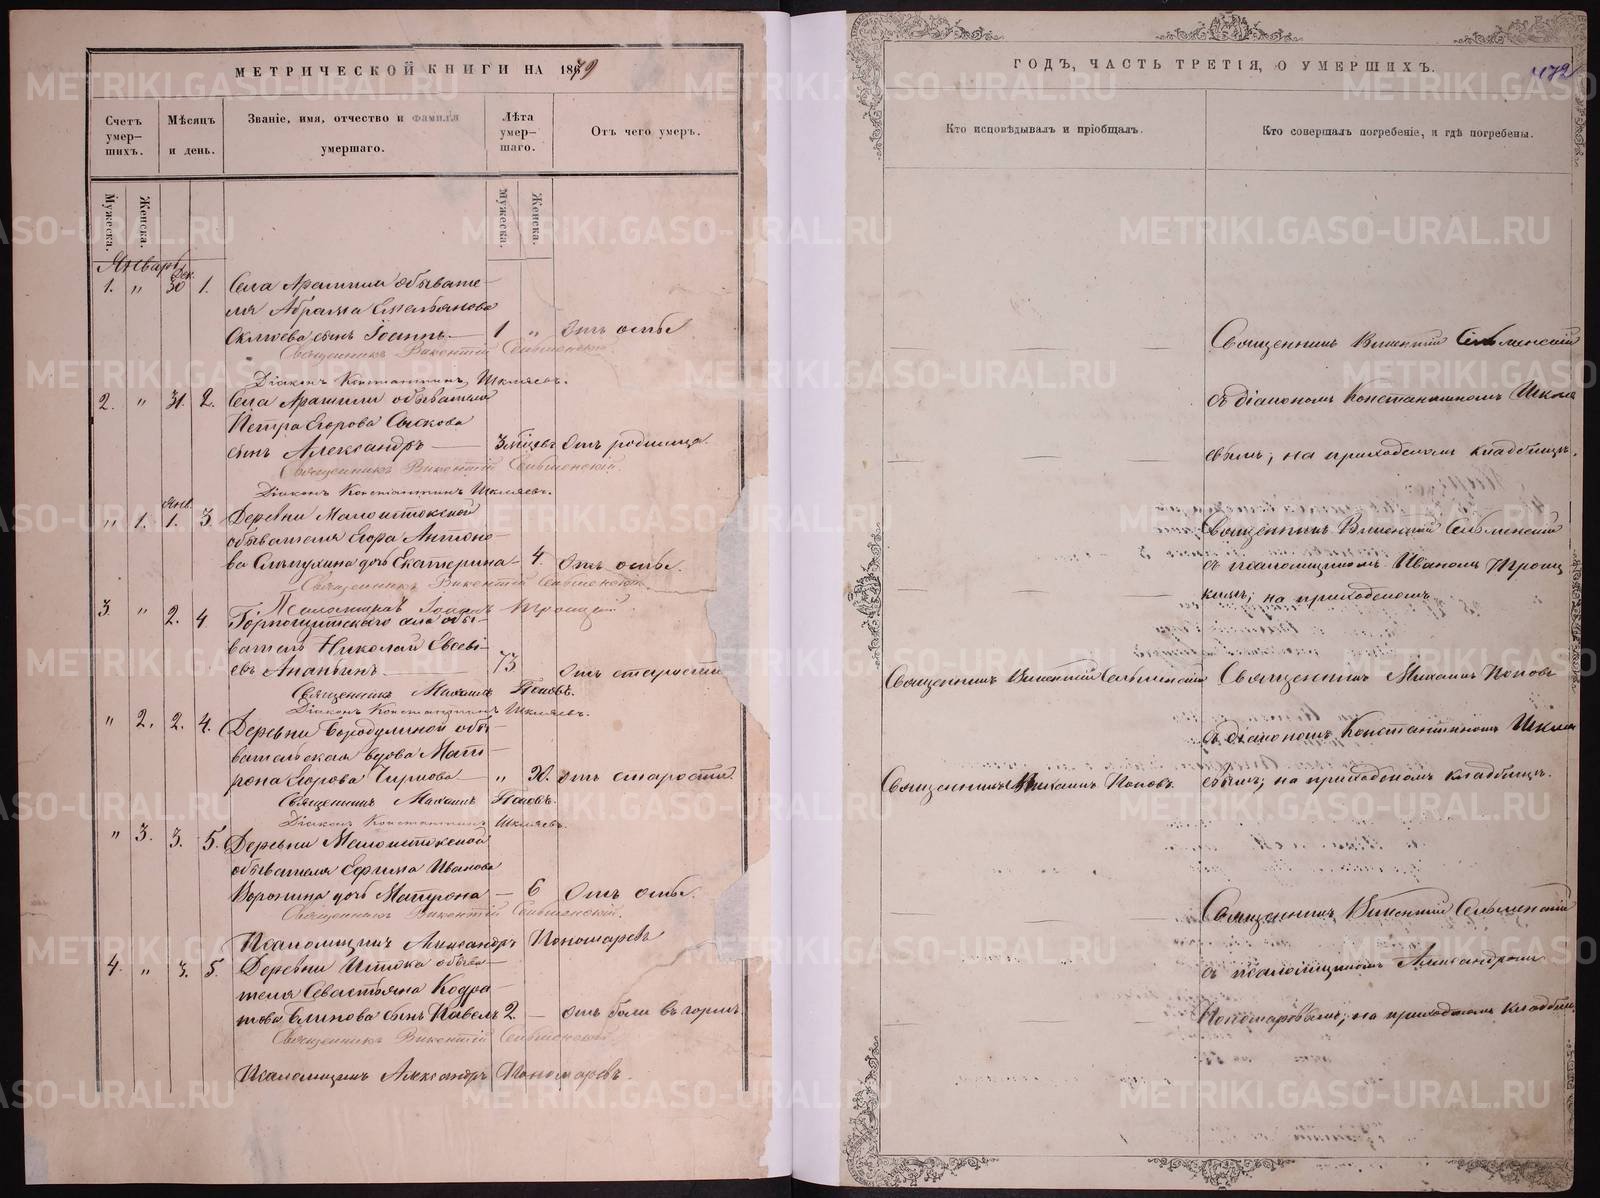 МЕТРИЧЕСКОЙ КНИГИ НА 1879
Счетъ умер-шихъ.
Мѣсяцъ и день.
Званіе, имя, отчество и фамилія умершаго.
Лѣта умер-шаго.
Отъ чего умеръ.
Мужеска.
Женска.
Мужеска.
Женска.
Январь
Дек.
1. " 30 1. Села Арамили обывате-
ля Абрама Емельянова
сынъ Іоаннъ — 1 " Отъ оспы
Священникъ Викентій Сельменскій
Діаконъ Константинъ Шкляевъ.
2. " 31. 2. Села Арамили обывателя
Петра Егорова Сыскова
сынъ Александръ — 3 мѣсяц. Отъ родимца
Священникъ Викентій Сельменскій.
Діаконъ Константинъ Шкляевъ.
Янв.
" 1. 1. 3. Деревни Малоистокской
обывателя Егора Антоно-
ва дочь Екатерина - 4. Отъ оспы.
Священникъ Викентій Сельменскій
Псаломщикъ Іоаннъ Троицкій
3. " 2. 4. Горнощитского села обы-
ватель Николай Евсеві-
евъ Ананьинъ — 73 Отъ старости
Священникъ Михаилъ Поповъ.
Діаконъ Константинъ Шкляевъ.
" 2. 2. 4. Деревни Бородулиной обы-
вательская вдова Мат-
рона Егорова Чиркова — " 70. отъ старости.
Священникъ Михаилъ Поповъ.
Діаконъ Константинъ Шкляевъ.
" 3. 3. 5. Деревни Малоистокской
обывателя Ефрима Иванова
Воронина дочь Матрона — 6 Отъ оспы.
Священникъ Викентій Сельменскій.
Псаломщикъ Александръ Пономаревъ
4. " 3. 5. Деревни Истока обыва-
теля Севастьяна Кодра-
това Блинова сынъ Павелъ 2. — отъ боли въ горлѣ.
Священникъ Викентій Сельменскій
Псаломщикъ Александръ Пономаревъ.
ГОДЪ, ЧАСТЬ ТРЕТІЯ, О УМЕРШИХЪ.
472
Кто исповѣдывалъ и пріобщалъ.
Кто совершалъ погребеніе, и гдѣ погребены.
Священникъ Викентій Сельменскій
съ діакономъ Константиномъ Шкля
евымъ, на приходскомъ кладбищѣ.
Священникъ Викентій Сельменскій
съ псаломщикомъ Иваномъ Троиц
кимъ, на приходскомъ
Священникъ Викентій Сельменскій
Священникъ Михаилъ Поповъ
съ діакономъ Константиномъ Шкля
Священникъ Михаилъ Поповъ.
евымъ, на приходскомъ кладбищѣ.
Священникъ Викентій Сельменскій
съ псаломщикомъ Александромъ
Пономаревымъ, на приходскомъ кладбищ.
METRIKI.GASO-URAL.RU